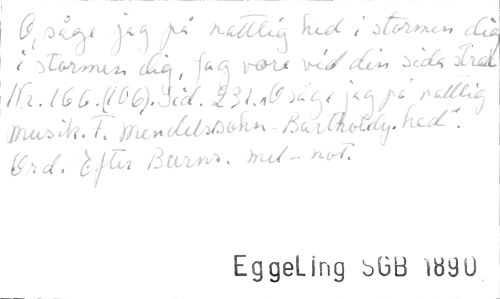 O, såge jag på nattlig hed i stormen dig
i stormen dig, Jag vore vid din sida strax
Nr. 166. (106). Sid. 231. "O såge jag på nattlig
Musik. F. Mendelssohn-Bartholdy. hed".
Ord. Efter Burns. mel-not.
EggeLing SGB 1890